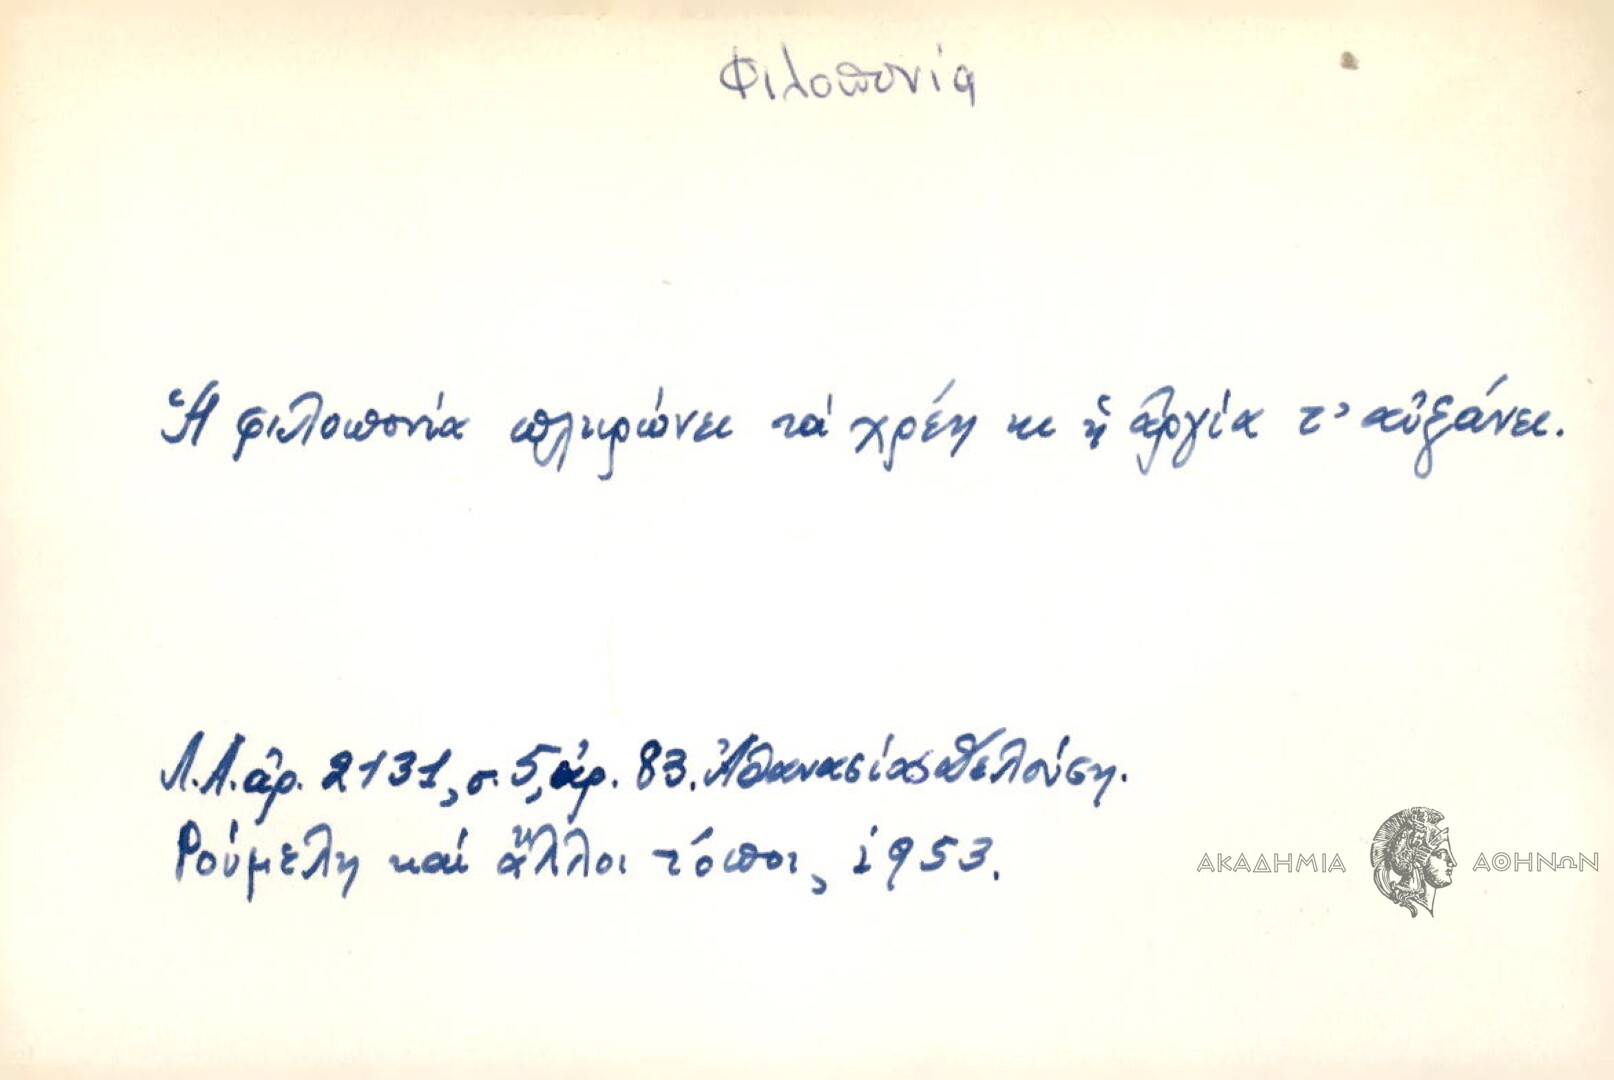 Φιλοπονία
Ἡ φιλοπονία πληρώνει τά χρέη κι ἡ ἀργία τ' αὐξάνει.
Λ.Α. ἀρ. 2131, σ. 5, ἀρ. 83. Ἀθανασίας
Ρούμελη καί ἄλλοι τόποι, 1953.
ΑΚΑΔΗΜΙΑ ΑΘΗΝΩΝ